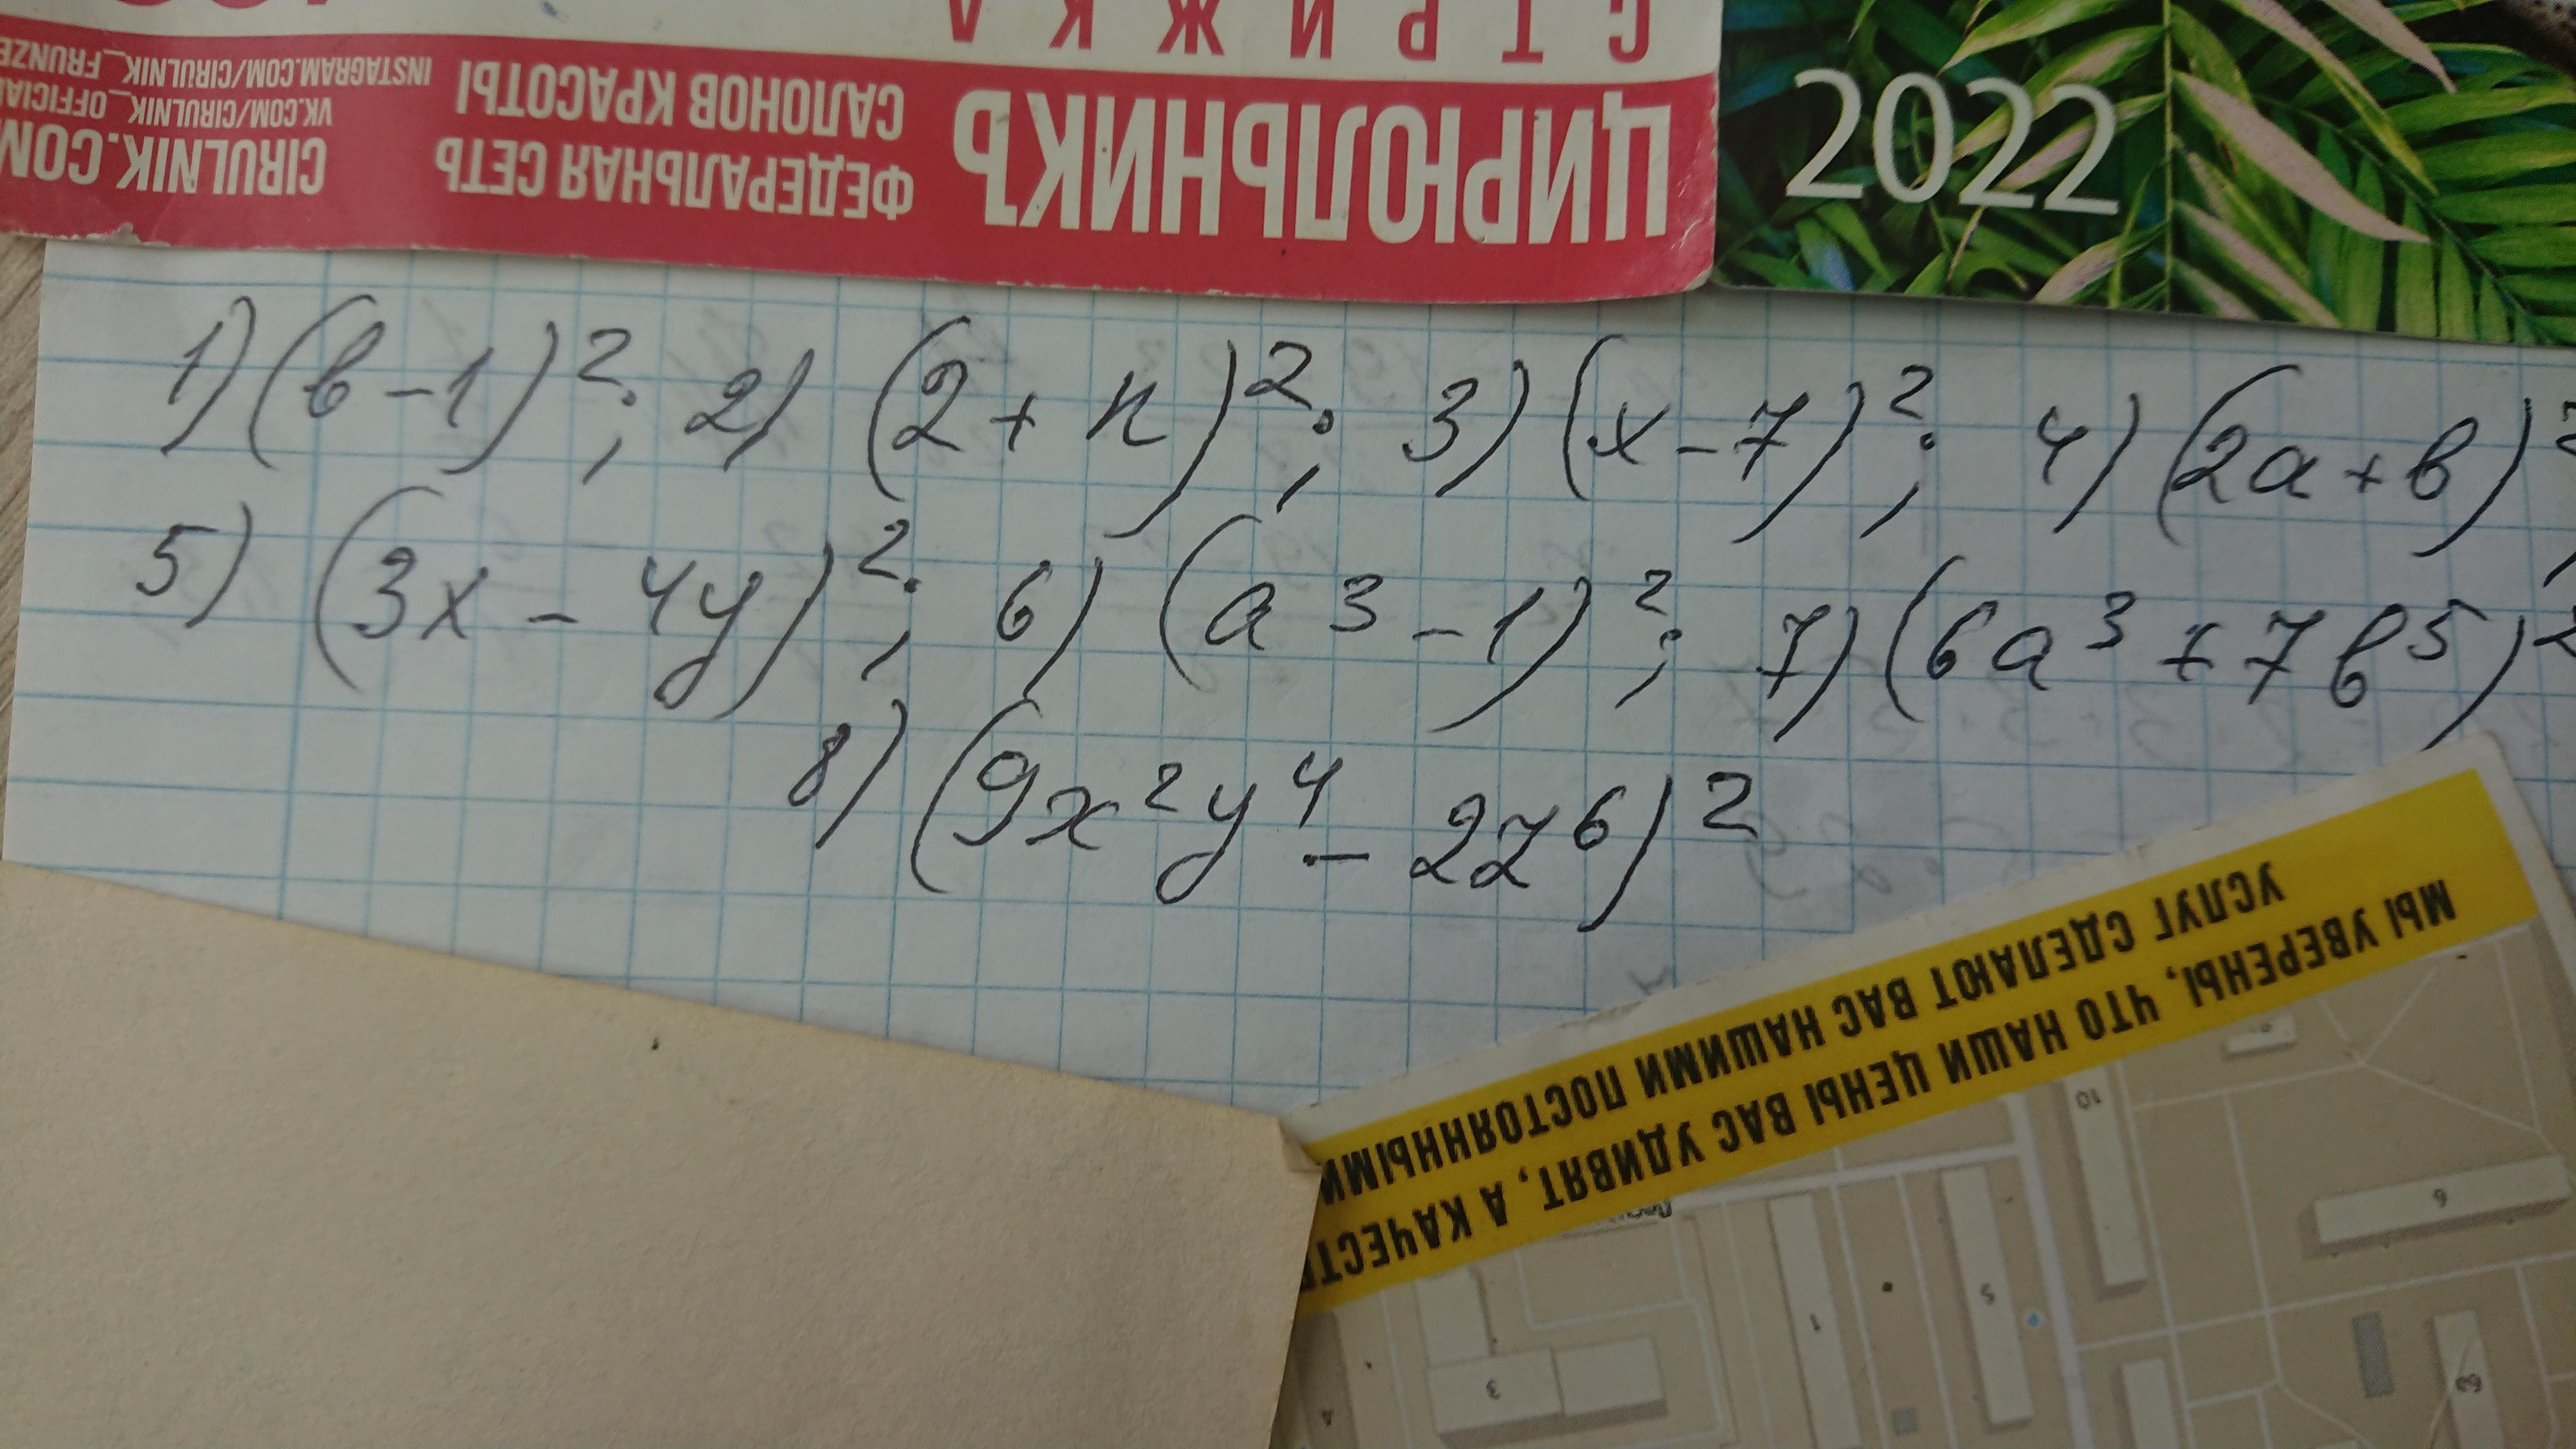 СТРИЖКА
ЦИРЮЛЬНИКЪ
ФЕДЕРАЛЬНАЯ СЕТЬ
САЛОНОВ КРАСОТЫ
CIRULNIK.COM
VK.COM/CIRULNIK_OFFICIAL
INSTAGRAM.COM/CIRULNIK_FRUNZE
2022
1) (в-1)²; 2) (2+n)²; 3) (x-7)²; 4) (2a+в)²
5) (3x-4y)²; 6) (a³-1)²; 7) (6a³+7в⁵)²
8) (9x²y⁴-2z⁶)²
МЫ УВЕРЕНЫ, ЧТО НАШИ ЦЕНЫ ВАС УДИВЯТ, А КАЧЕСТ
УСЛУГ СДЕЛАЮТ ВАС НАШИМИ ПОСТОЯННЫМИ
10
6
5
1
3